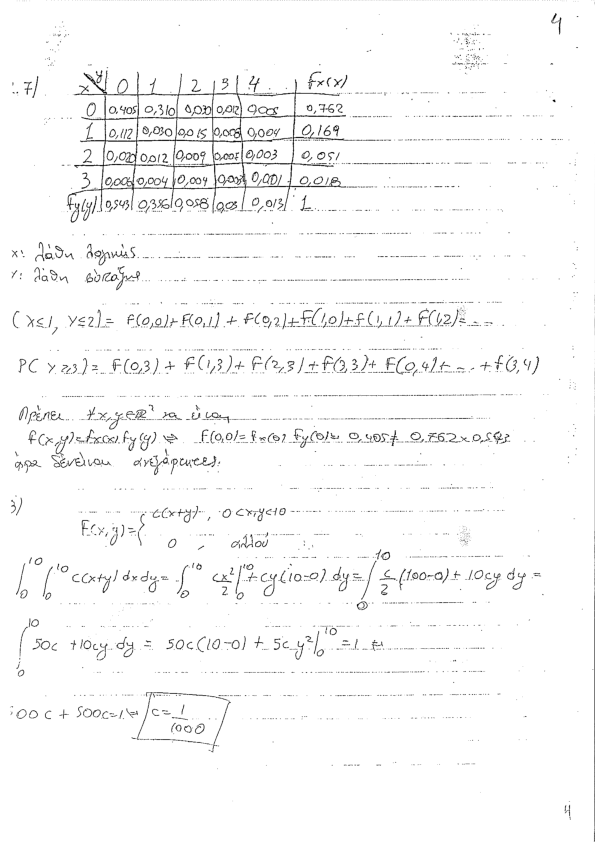 4
.7)
x y 0 1 2 3 4 fx(x)
0 0,405 0,310 0,030 0,012 0,005 0,762
1 0,112 0,030 0,015 0,008 0,004 0,169
2 0,020 0,012 0,009 0,003 0,051
3 0,006 0,004 0,004 0,001 0,018
fy(y) 0,543 0,356 0,058 0,03 0,013 1
x: λάθη λογικής
Y: λάθη σύνταξης
( X≤1, Y≤2)= f(0,0)+f(0,1) + f(0,2)+f(1,0)+f(1,1)+f(1,2)= ...
P( Y≥3)= f(0,3) + f(1,3)+ f(2,3)+f(3,3)+ f(0,4)+ ... +f(3,4)
Πρέπει ∀x,y∈ℝ² να είναι
f(x,y)=fx(x).fy(y) ⇔ f(0,0)=fx(0).fy(0)= 0,405≠ 0,762×0,543
άρα δεν είναι ανεξάρτητες.
3)
f(x,y)={ c(x+y) , 0<x,y<10
0 , αλλού
∫₀¹⁰ ∫₀¹⁰ c(x+y) dxdy= ∫₀¹⁰ cx²/2 |₀¹⁰ +cy(10-0) dy= ∫₀¹⁰ c/2 (100-0)+ 10cy dy =
∫₀¹⁰ 50c +10cy dy = 50c(10-0) + 5cy² |₀¹⁰ =1 ⇔
500c + 500c=1 ⇔ c= 1/1000
4